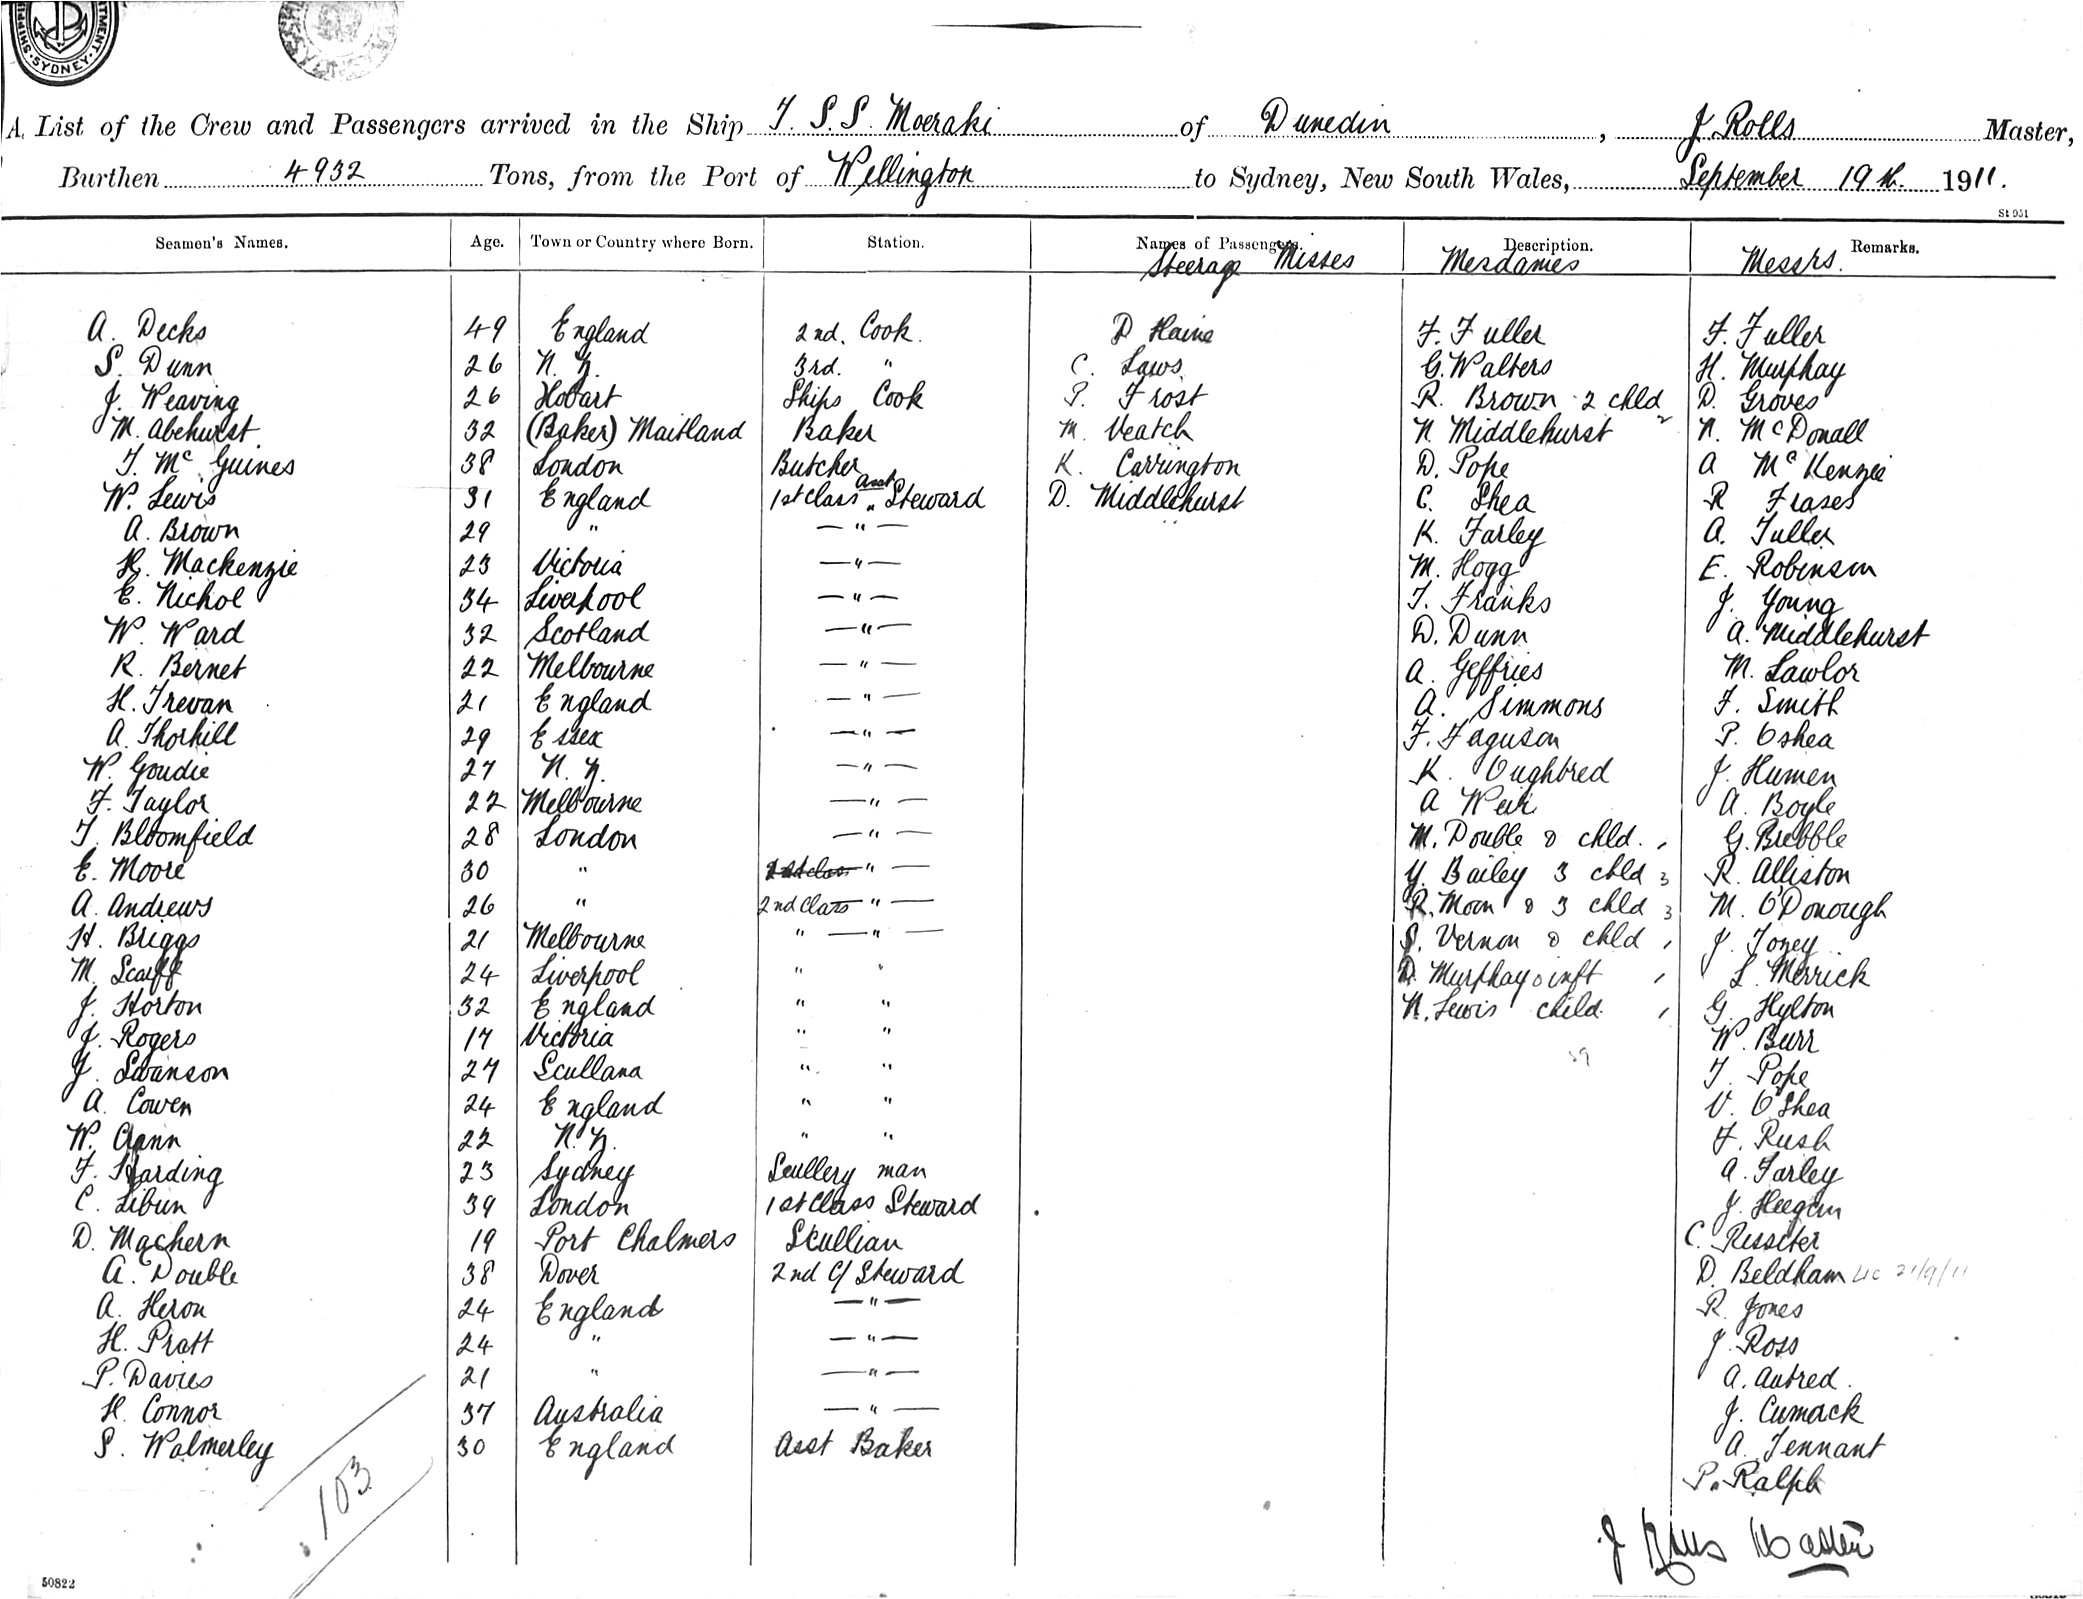 SYDNEY
A. List of the Crew and Passengers arrived in the Ship T. S. S. Moeraki of Dunedin, J Rolls Master,
Burthen 4932 Tons, from the Port of Wellington to Sydney, New South Wales, September 19th 1911.
St 951
Seamen's Names. Age. Town or Country where Born. Station. Names of Passengers. Description. Remarks.
Steerage Misses Mesdames Messrs.
A. Decks 49 England 2nd. Cook. D Haine F. Fuller F. Fuller
S. Dunn 26 N. Z. 3rd. " C. Laws G. Walters H. Murphay
J. Weaving 26 Hobart Ships Cook P. Frost R. Brown 2 chld 2 D. Groves
M. Abehurst 32 (Baker) Maitland Baker M. Veatch N Middlehurst N. McDonall
T. Mc Guines 38 London Butcher K. Carrington D. Pope A McKenzie
W. Lewis 31 England 1st Class Asst " Steward D. Middlehurst C. Shea R Frases
A. Brown 29 " — " — K. Farley A. Fuller
H. Mackenzie 23 Victoria — " — M. Hogg E. Robinson
E. Nichol 34 Liverpool — " — T. Franks J. Young
W. Ward 32 Scotland — " — D. Dunn A. Middlehurst
R. Bernet 22 Melbourne — " — A. Geffries M. Lawlor
H. Trevan 21 England — " — A. Simmons F. Smith
A. Thorhill 29 Essex — " — F. Feguson P. Oshea
W. Goudie 27 N. Z. — " — K. Oughbred J. Humen
F. Taylor 22 Melbourne — " — A Weir A. Boyle
T. Bloomfield 28 London — " — M. Double & chld. , G. Brebble
E. Moore 30 " 2nd class " — Y. Bailey 3 chld 3 R. Alliston
A. Andrews 26 " 2nd Class " — R. Moon & 3 chld 3 M. O'Donough
H. Briggs 21 Melbourne " — " — S. Vernon & chld , J. Tozey
M. Scaiff 24 Liverpool " " D. Murphay & inft , L. Merrick
J. Horton 32 England " " N. Lewis child. , G. Hylton
J. Rogers 17 Victoria " " W. Burr
J. Swanson 27 Scullana " " 39 T. Pope
A. Cowen 24 England " " V. O'Shea
W. Cann 22 N. Z. " " F. Rush
F. Harding 23 Sydney Scullery man A. Farley
C. Libun 39 London 1st Class Steward J. Heegan
D. Machern 19 Port Chalmers Scullian C. Rissiter
A. Double 38 Dover 2nd C/ Steward D. Beldham 21/9/11
A. Heron 24 England — " — R. Jones
H. Pratt 24 " — " — J. Ross
P. Davies 21 " — " — A. Autred.
H. Connor 37 Australia — " — J. Cumack
S. Walmerley 30 England Asst Baker A. Tennant
P. Ralph
103
J Rolls Master
50822